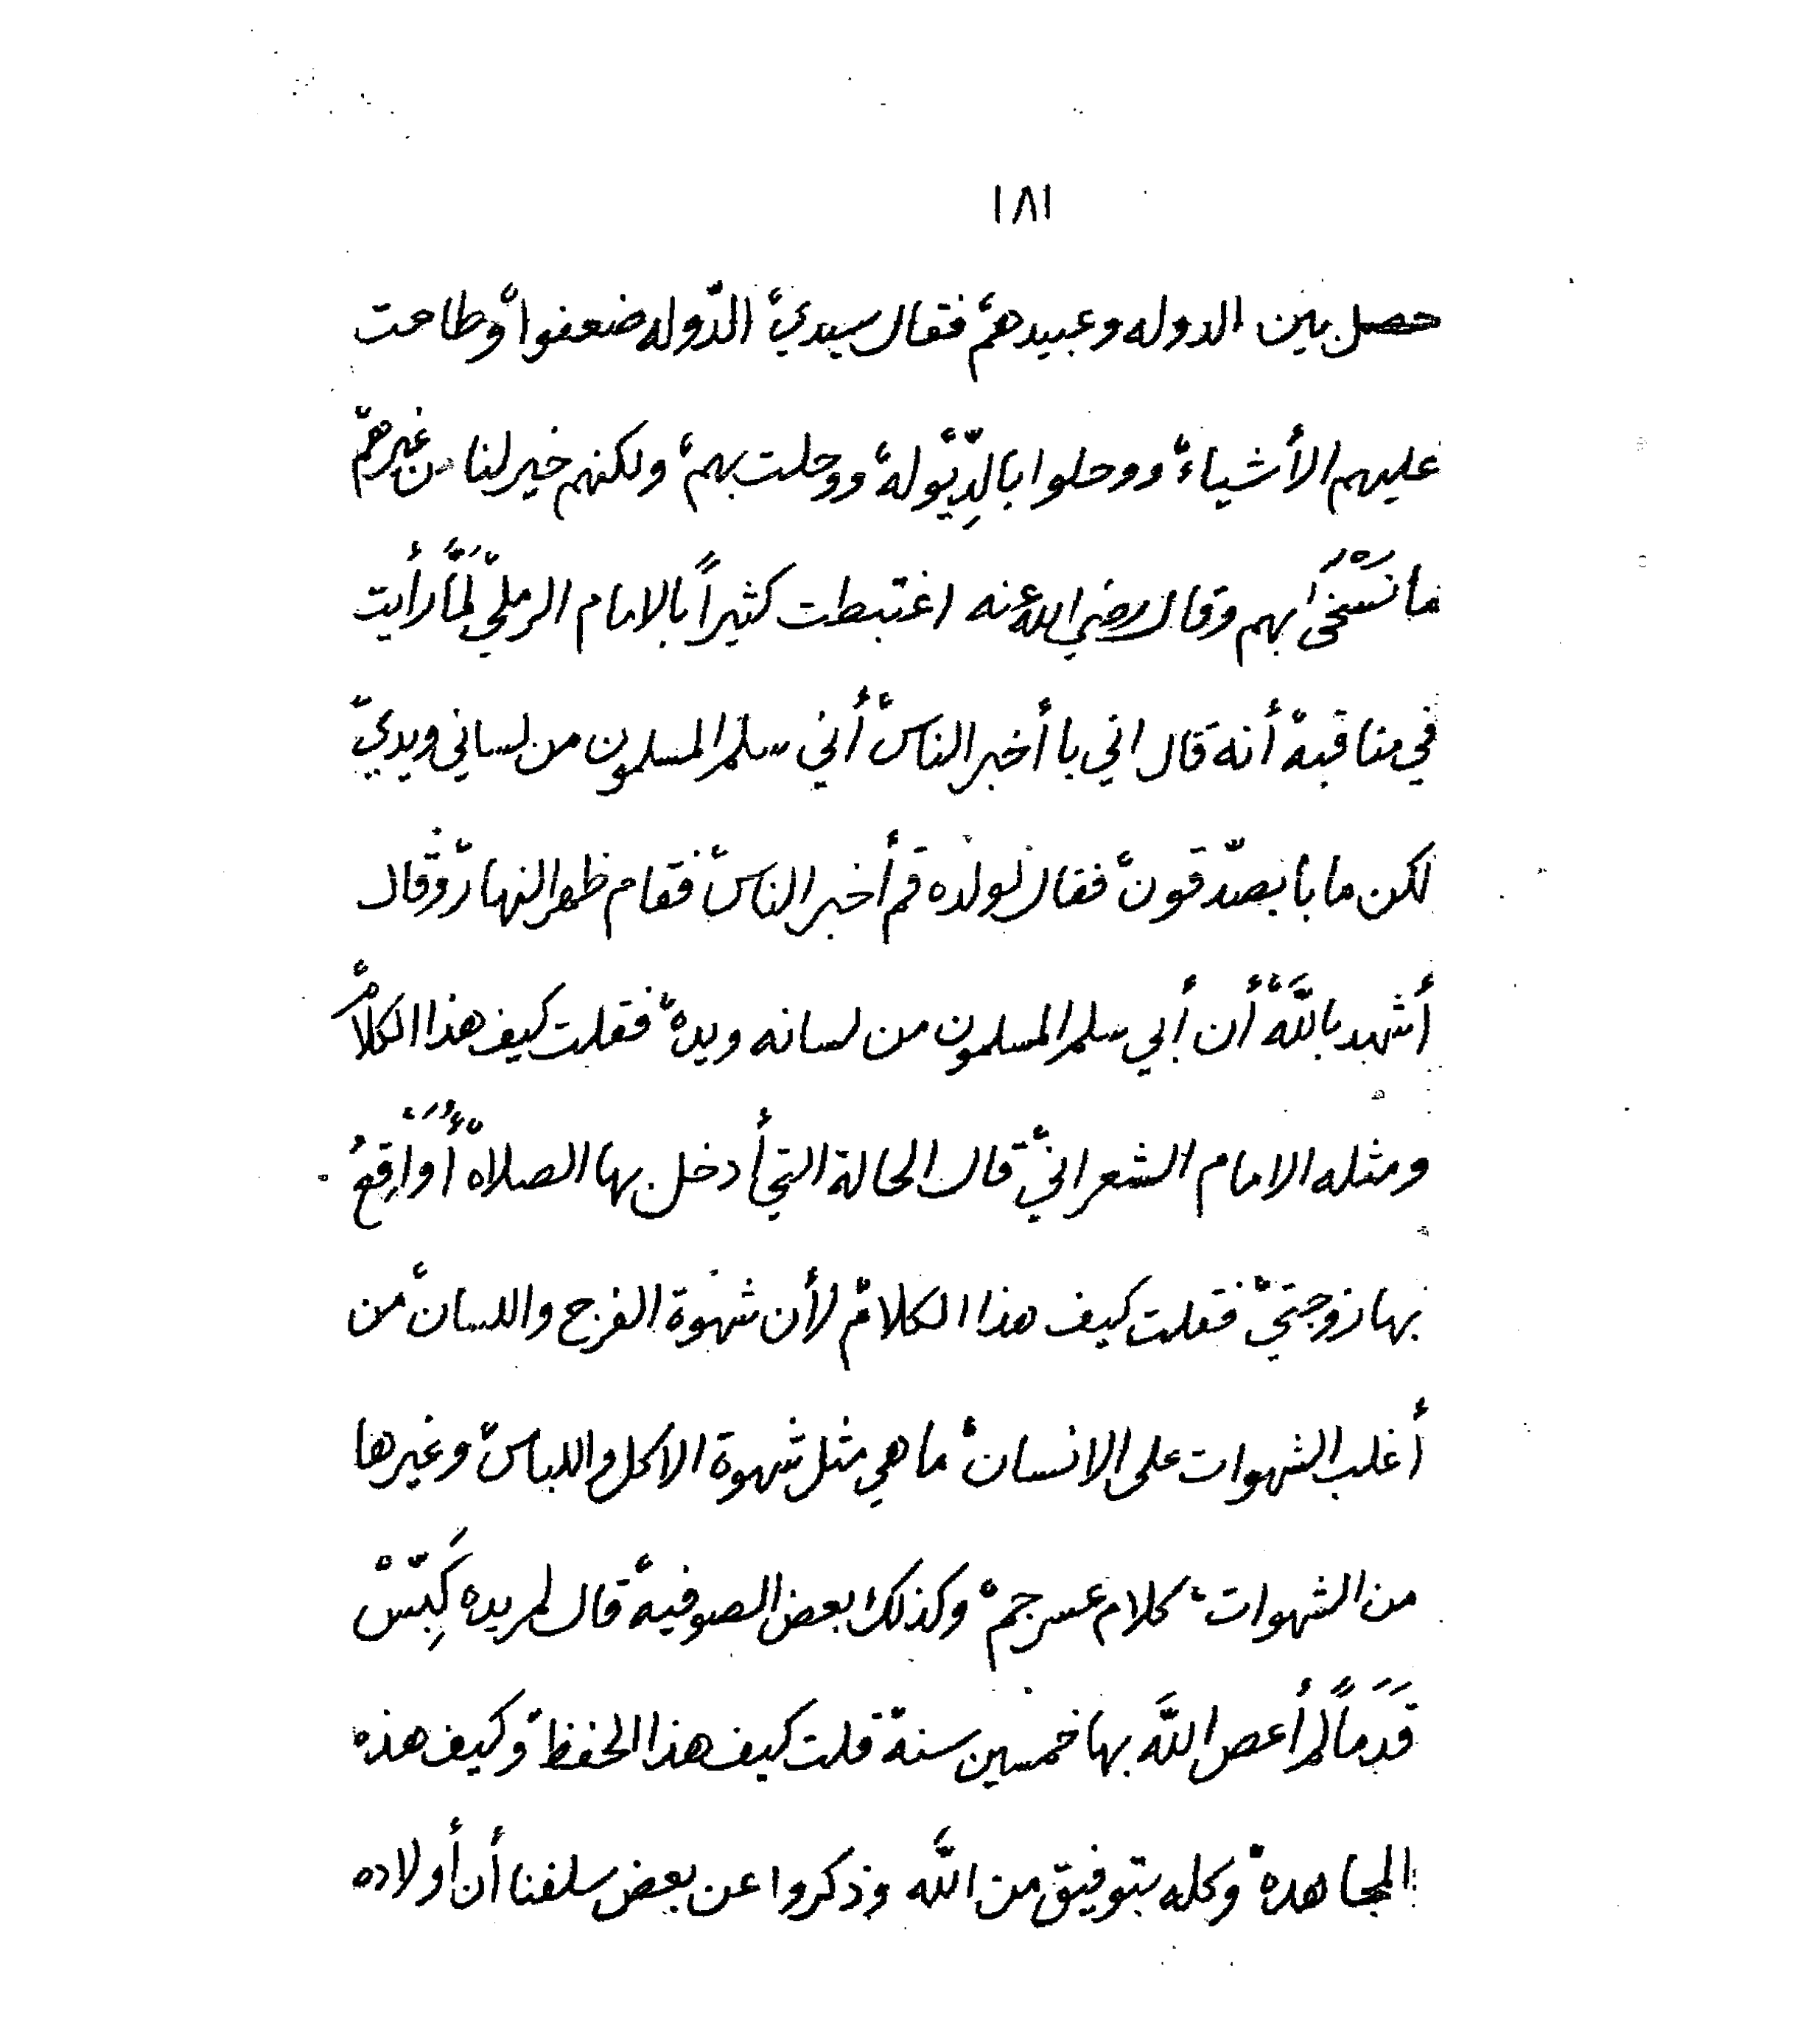 ١٨١
حصل بين الدوله وعبيدهم، فقال سيدي، الدّوله ضعفوا، وطاحت
عليهم الأشياء، ووحلوا بالدِّيْوله، ووحلت بهم، ولكنهم خير لنا من غيرهم،
ما نَسْخَىٰ بهم وقال رضي الله عنه اغتبطت كثيراً بالامام الرملي، لمَّا رأيت
في مناقبه، أنه قال اني با أخبر الناس، أني سلم المسلمون من لساني ويدي،
لكن ما با يصدّقون، فقال لولده قم أخبر الناس، فقام ظهر النهار، وقال
أشهد باللَّه، أن أبي سلم المسلمون من لسانه ويده، فقلت كيف هذا الكلام،
ومثله الامام الشعراني، قال الحالة التي أدخل بها الصلاه، أُوَاقِعُ
بها زوجتي، فقلت كيف هذا الكلام، لأن شهوة الفرج واللسان، من
أغلب الشهوات على الانسان، ما هي مثل شهوة الاكل واللباس، وغيرها
من الشهوات، كلام عسر جم، وكذلك بعض الصوفيه، قال لمريده كَبِّسْ
قَدَماً لم أعص اللَّه بها خمسين سنة، قلت كيف هذا الحفظ، وكيف هذه
المجاهدة، وكله بتوفيق من اللَّه وذكروا عن بعض سلفنا أن أولاده